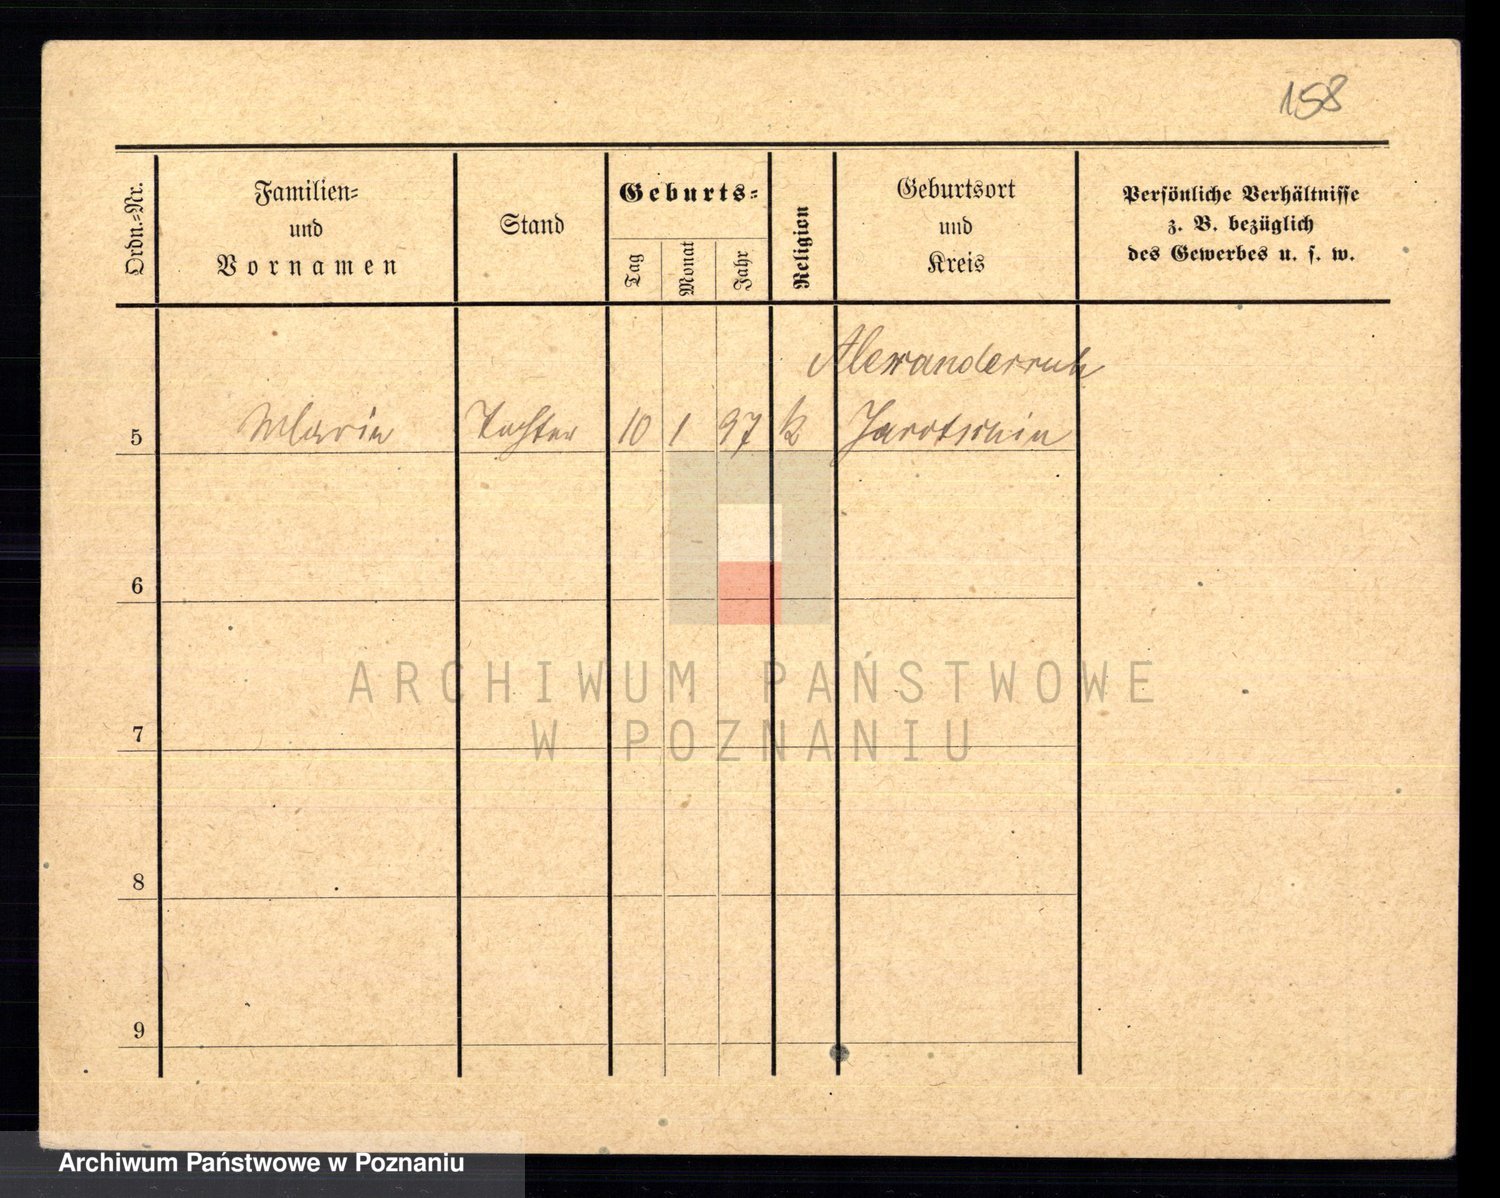 158
Ordn.-Nr.
Familien-
und
Vornamen
Stand
Geburts-
Tag
Monat
Jahr
Religion
Geburtsort
und
Kreis
Persönliche Verhältnisse
z. B. bezüglich
des Gewerbes u. s. w.
Alexanderruh
5 Marie Tochter 10 1 97 k Jarotschin
6
7
8
9
ARCHIWUM PAŃSTWOWE
W POZNANIU
Archiwum Państwowe w Poznaniu